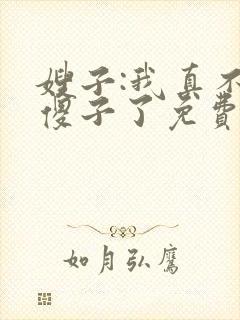 嫂子:我真不
傻子了免费
如月弘鹰